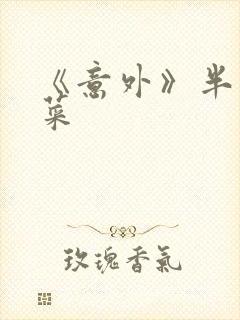 《意外》半
菜
玫瑰香氣